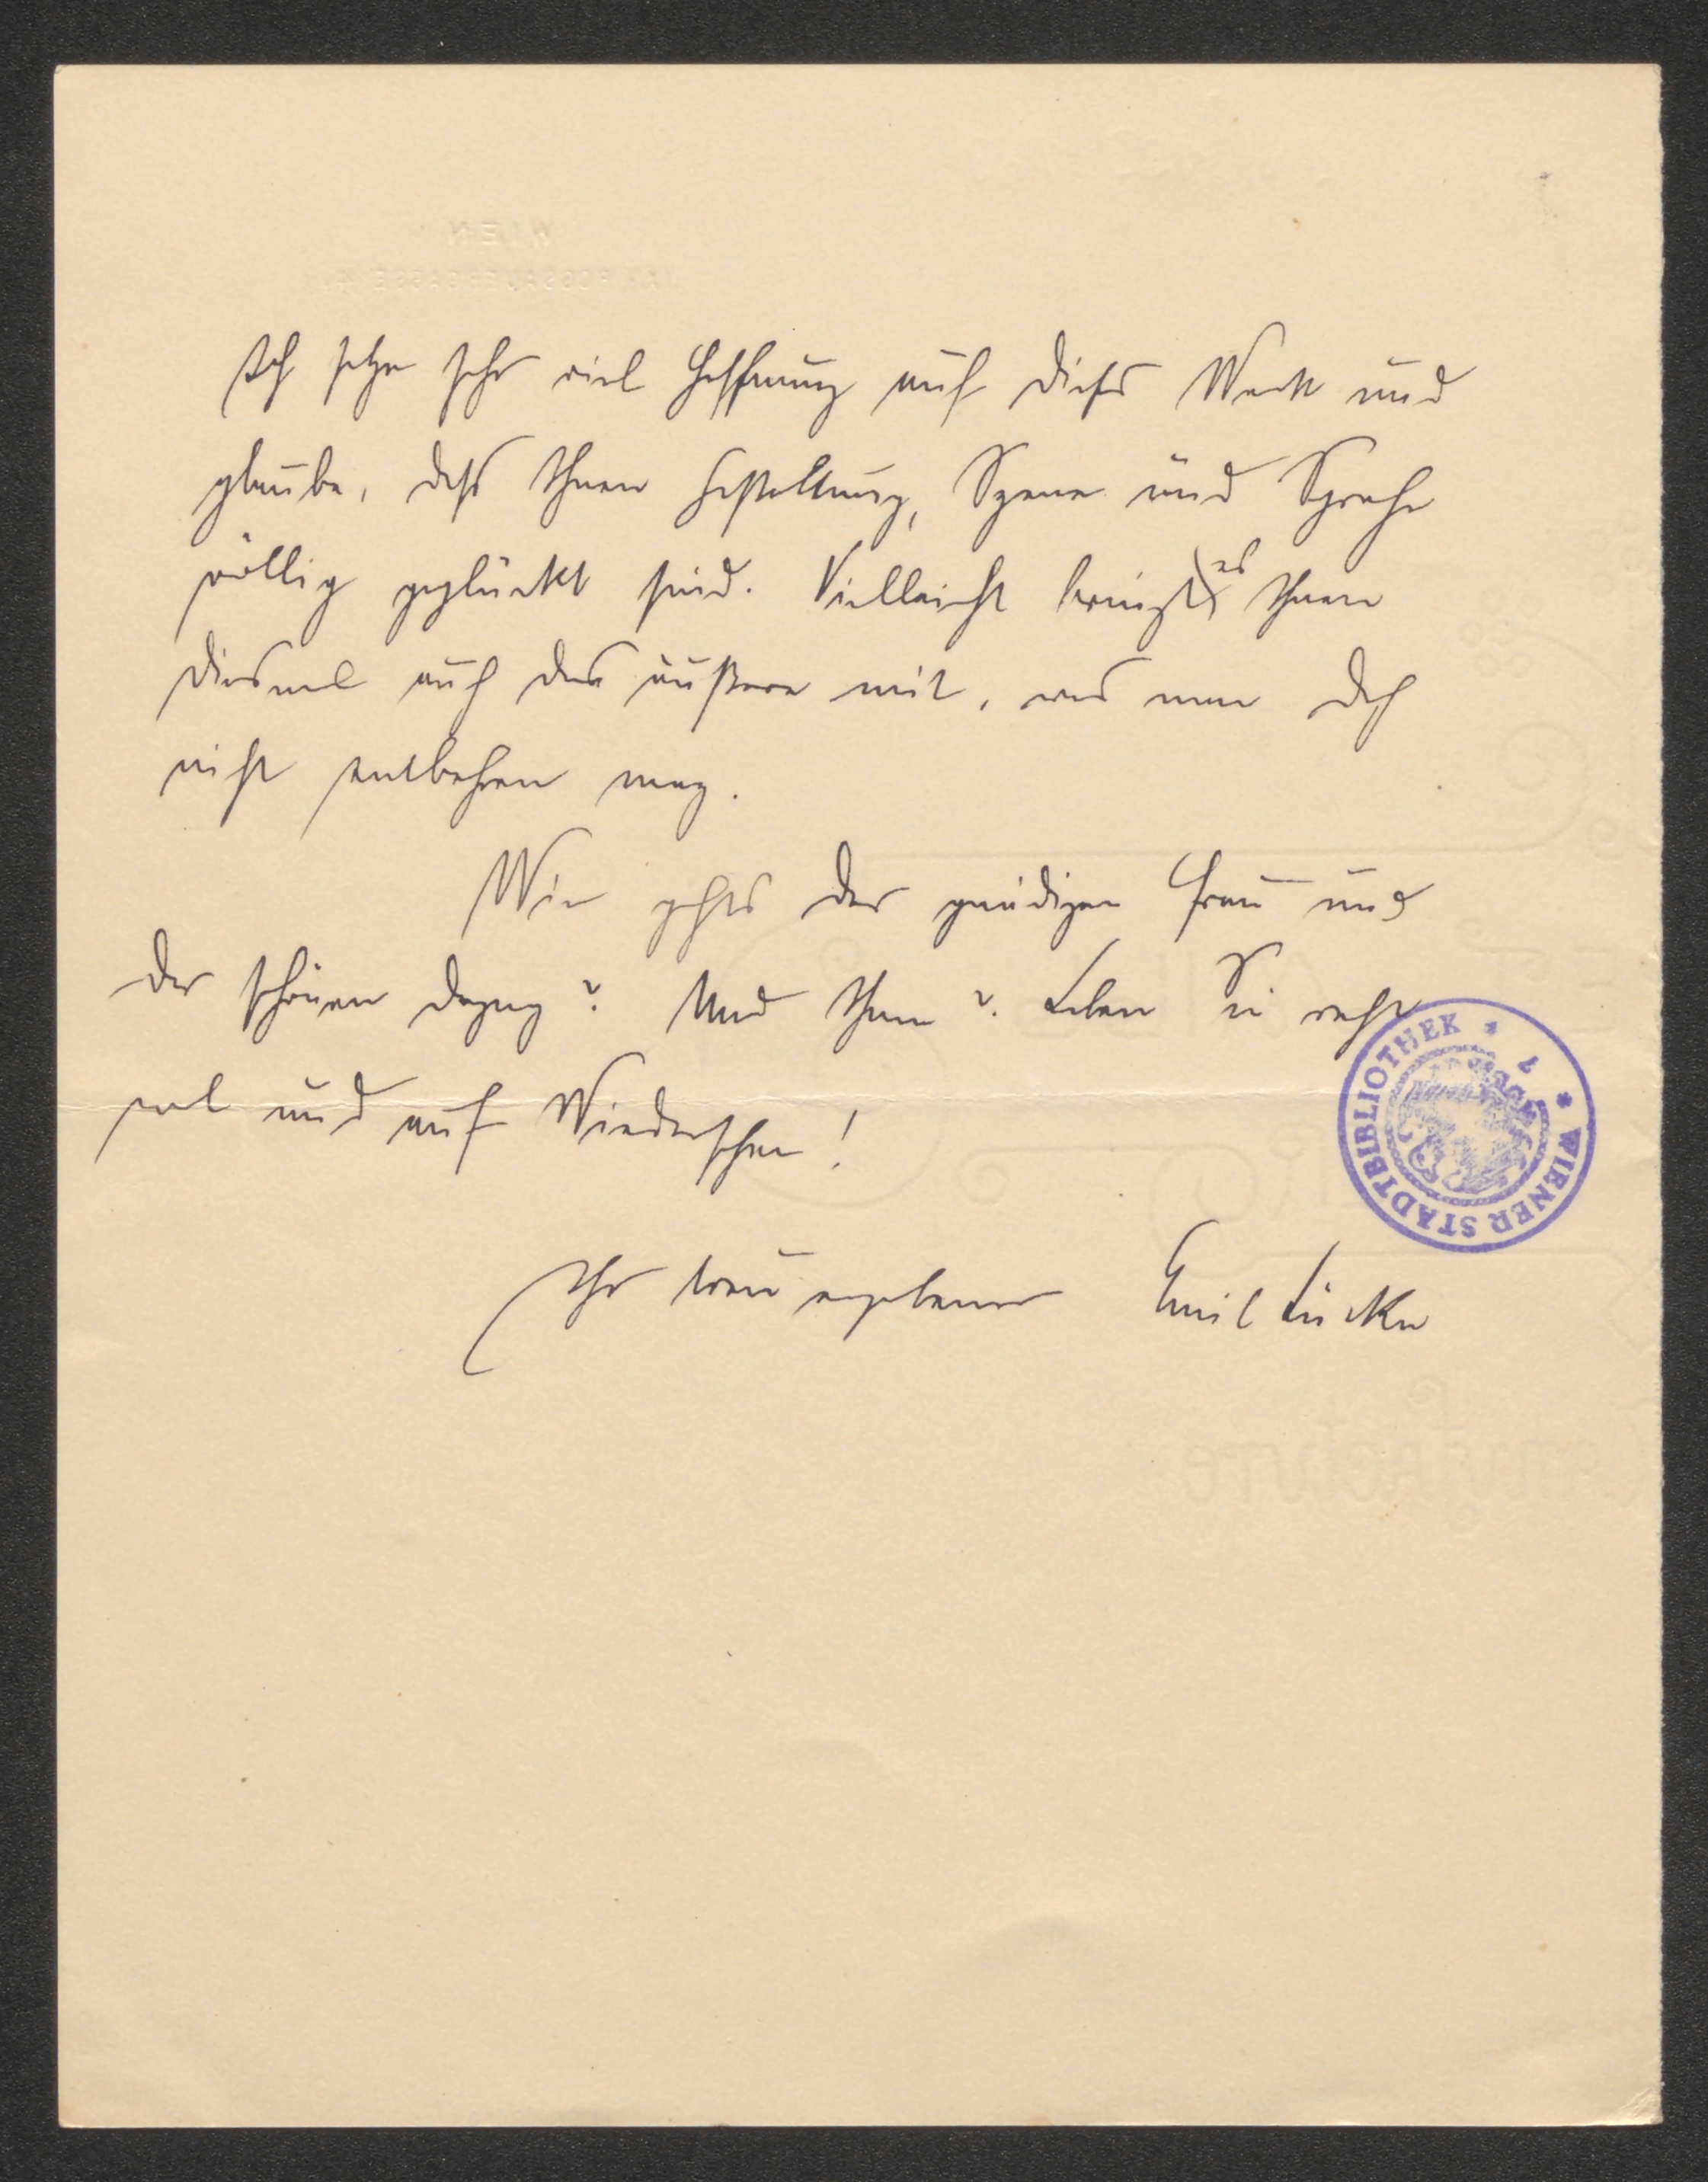 WIEN
Ich setze sehr viel Hoffnung auf dieses Werk und
glaube, dass Ihnen Gestaltung, Szene und Sprache
völlig geglückt sind. Vielleicht bringt es Ihnen
diesmal auch das äußere mit, was man doch
nicht entbehren mag.
Wie gehts der gnädigen Frau und
der schönen ? Und Ihnen? Leben Sie recht
wol und auf Wiedersehen!
Ihr treu ergebener Emil Lucka
* WIENER STADTBIBLIOTHEK *